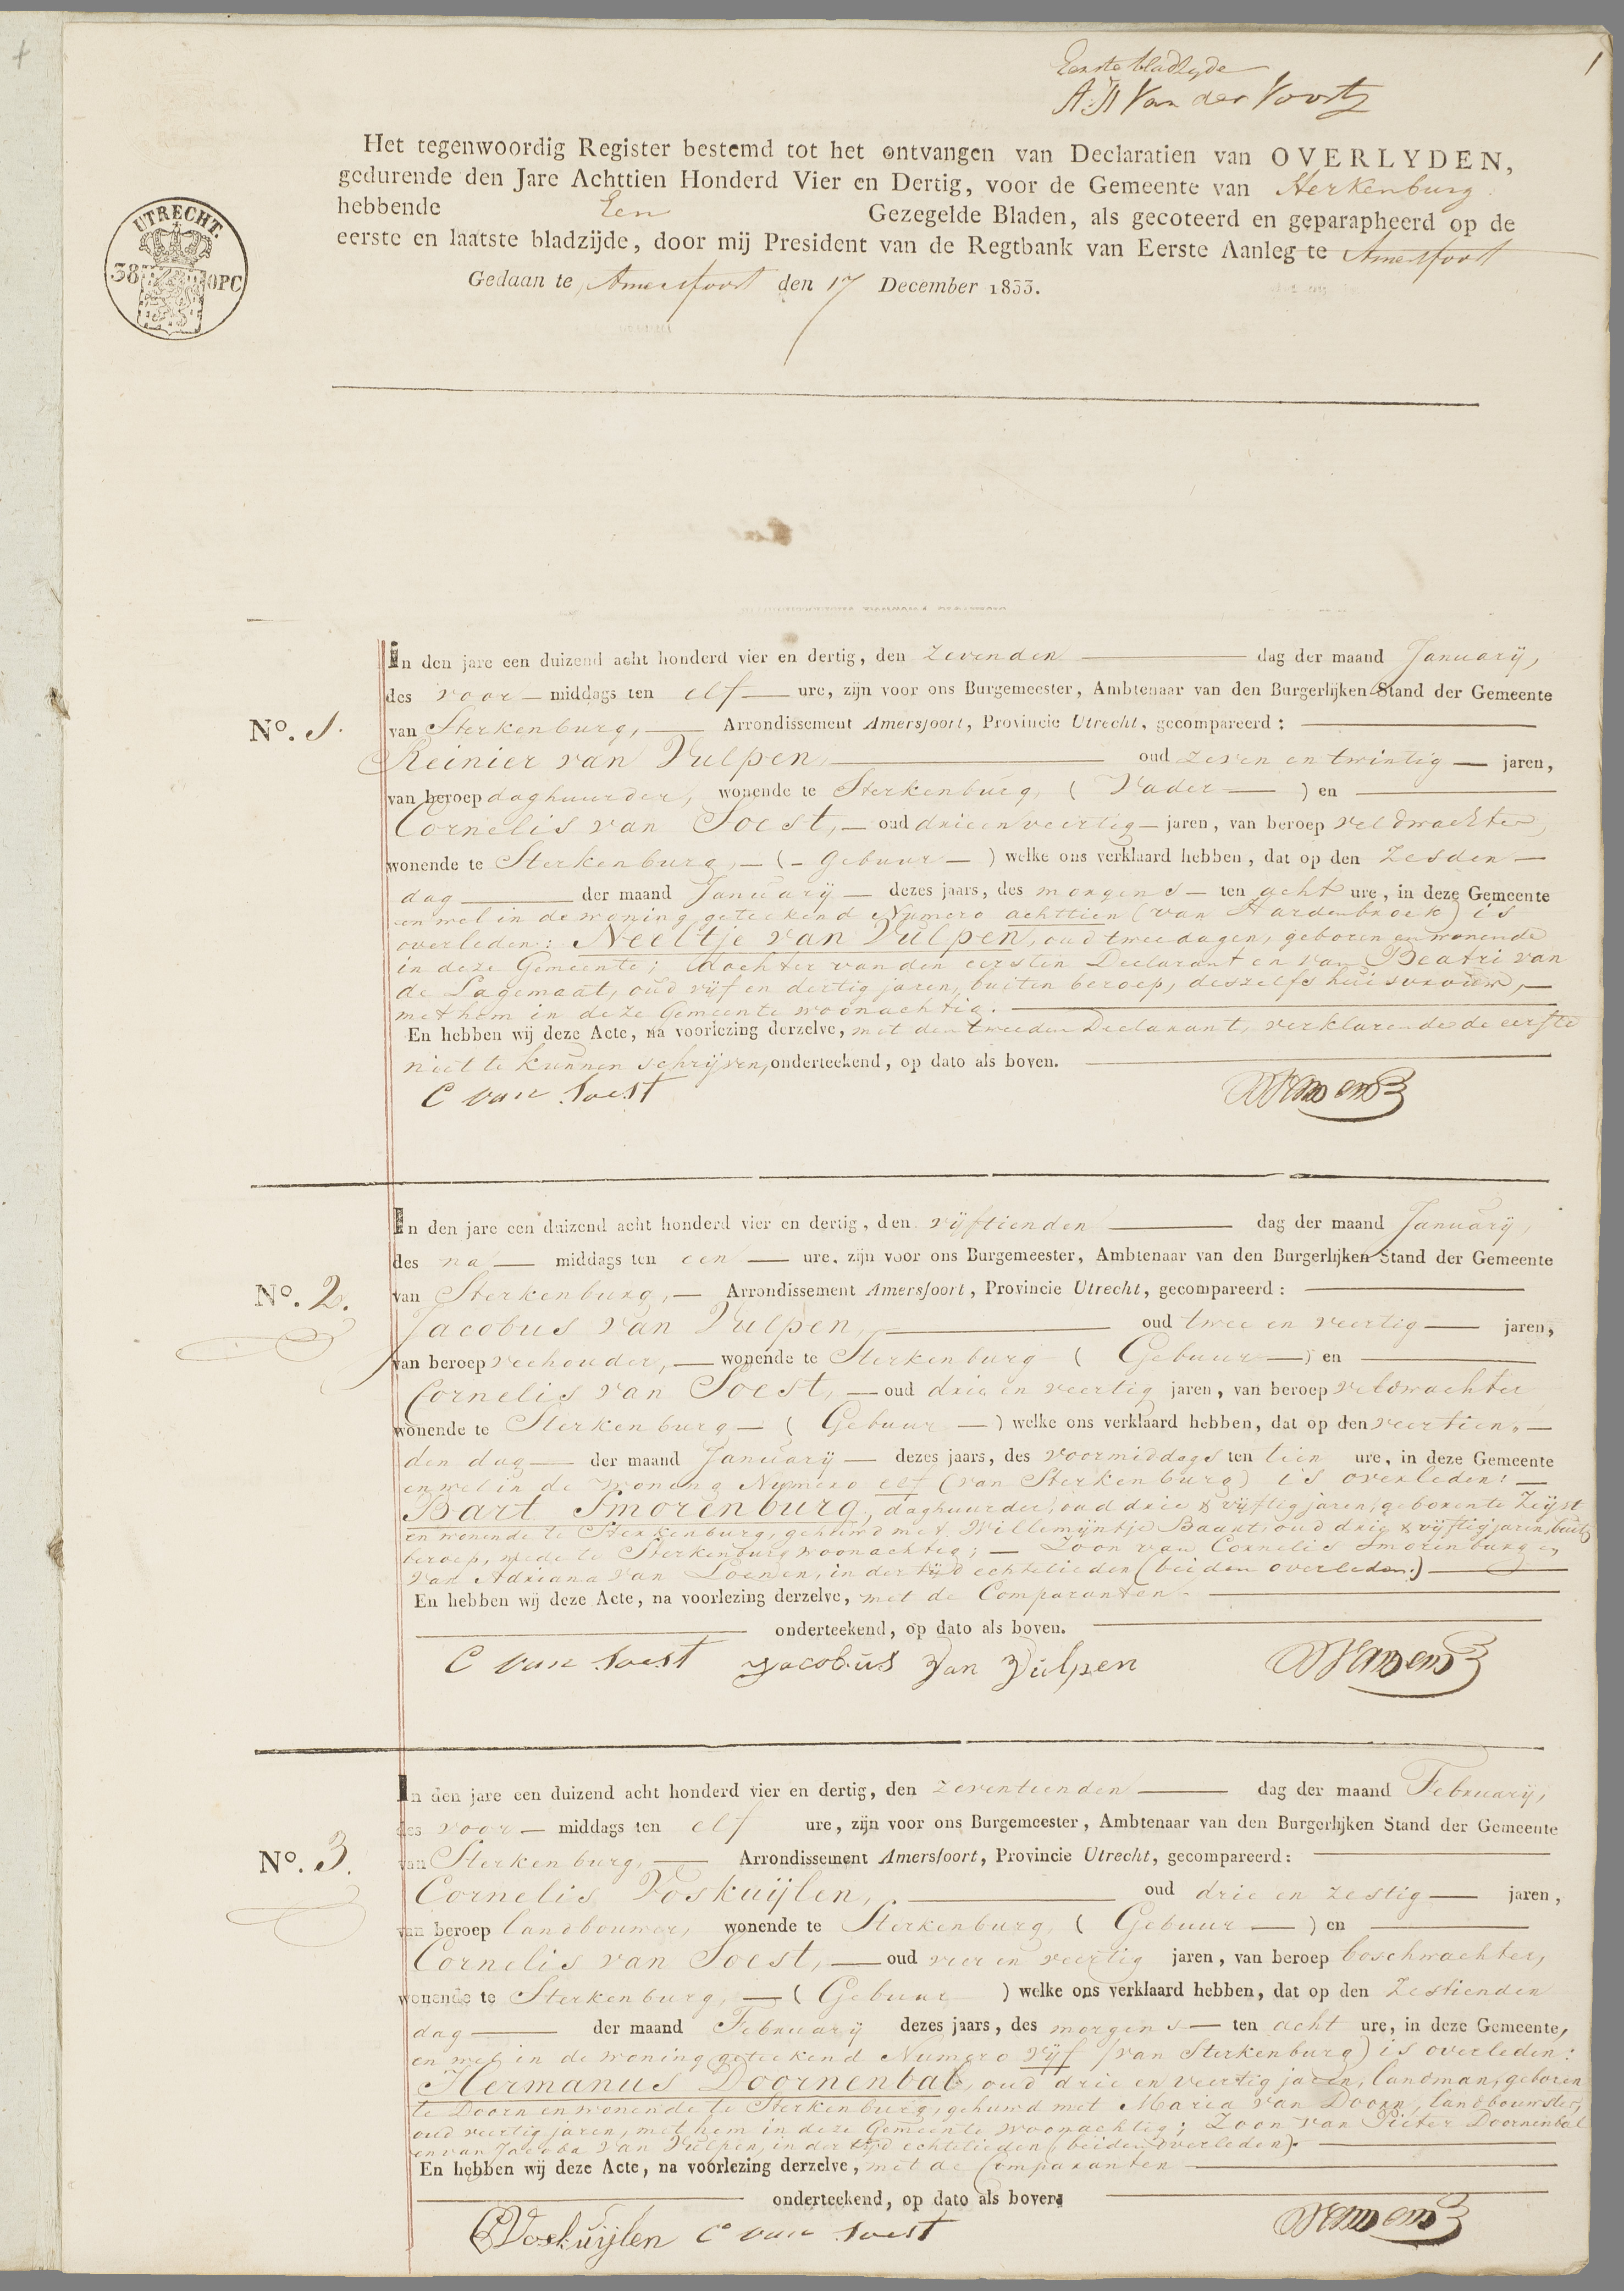 1
Eerste bladzyde
Van der Voort
Het tegenwoordig Register bestemd tot het ontvangen van Declaratien van OVERLYDEN,
gedurende den Jare Achttien Honderd Vier en Dertig, voor de Gemeente van Sterkenburg
hebbende Een Gezegelde Bladen, als gecoteerd en geparapheerd op de
eerste en laatste bladzijde, door mij President van de Regtbank van Eerste Aanleg te Amersfoort
Gedaan te Amersfoort den 17 December 1833.
UTRECHT.
38 OPC
In den jare een duizend acht honderd vier en dertig, den zevenden dag der maand January,
des voor middags ten elf ure, zijn voor ons Burgemeester, Ambtenaar van den Burgerlijken Stand der Gemeente
No. 1. van Sterkenburg, Arrondissement Amersfoort, Provincie Utrecht, gecompareerd:
Reinier van Vulpen, oud zeven en twintig jaren,
van beroep daghuurder, wonende te Sterkenburg, (Vader) en
Cornelis van Soest, oud drie en veertig jaren, van beroep veldwachter,
wonende te Sterkenburg, (- Gebuur -) welke ons verklaard hebben, dat op den zesden
dag der maand January dezes jaars, des morgens ten acht ure, in deze Gemeente
en wel in de woning geteekend Numero achttien (van Hardenbroek) is
overleden: Neeltje van Vulpen, oud twee dagen, geboren en wonende
in deze Gemeente; dochter van den eersten Declarant en van Beatri van
de Lagemaat, oud vijf en dertig jaren, buiten beroep, deszelfs huisvrouw,
met hem in deze Gemeente woonachtig.
En hebben wij deze Acte, na voorlezing derzelve, met den tweeden Declarant, verklarende de eerste
niet te kunnen schrijven, onderteekend, op dato als boven.
C van Soest
In den jare een duizend acht honderd vier en dertig, den vijftienden dag der maand January,
des na middags ten een ure, zijn voor ons Burgemeester, Ambtenaar van den Burgerlijken Stand der Gemeente
No. 2. van Sterkenburg, Arrondissement Amersfoort, Provincie Utrecht, gecompareerd:
Jacobus van Vulpen, oud twee en veertig jaren,
van beroep veehouder, wonende te Sterkenburg (Gebuur) en
Cornelis van Soest, oud drie en veertig jaren, van beroep veldwachter
wonende te Sterkenburg (Gebuur) welke ons verklaard hebben, dat op den veertien-
den dag der maand January dezes jaars, des voormiddags ten tien ure, in deze Gemeente
en wel in de woning Numero elf (van Sterkenburg) is overleden:
Bart Smorenburg, daghuurder, oud drie & vijftig jaren, geboren te Zeijst
en wonende te Sterkenburg, gehuwd met Willemijntje Baart, oud drie & vijftig jaren, buiten
beroep, mede te Sterkenburg woonachtig; Zoon van Cornelis Smorenburg en
van Adriana van Loenen, in der tijd echtelieden (beiden overleden.)
En hebben wij deze Acte, na voorlezing derzelve, met de Comparanten
onderteekend, op dato als boven.
C van Soest Jacobus van Vulpen
In den jare een duizend acht honderd vier en dertig, den zeventienden dag der maand February,
des voor middags ten elf ure, zijn voor ons Burgemeester, Ambtenaar van den Burgerlijken Stand der Gemeente
No. 3. van Sterkenburg, Arrondissement Amersfoort, Provincie Utrecht, gecompareerd:
Cornelis Voskuijlen, oud drie en zestig jaren,
van beroep landbouwer, wonende te Sterkenburg, (Gebuur) en
Cornelis van Soest, oud vier en veertig jaren, van beroep boschwachter,
wonende te Sterkenburg, (Gebuur) welke ons verklaard hebben, dat op den zestienden
dag der maand February dezes jaars, des morgens ten acht ure, in deze Gemeente,
en wel in de woning geteekend Numero vijf (van Sterkenburg) is overleden:
Hermanus Doornenbal, oud drie en veertig jaren, landman, geboren
te Doorn en wonende te Sterkenburg, gehuwd met Maria van Doorn, landbouwster,
oud veertig jaren, met hem in deze Gemeente woonachtig; Zoon van Pieter Doornenbal
en van Jacoba van Vulpen, in der tijd echtelieden (beiden overleden).
En hebben wij deze Acte, na voorlezing derzelve, met de Comparanten
onderteekend, op dato als boven
C Voskuijlen C van Soest